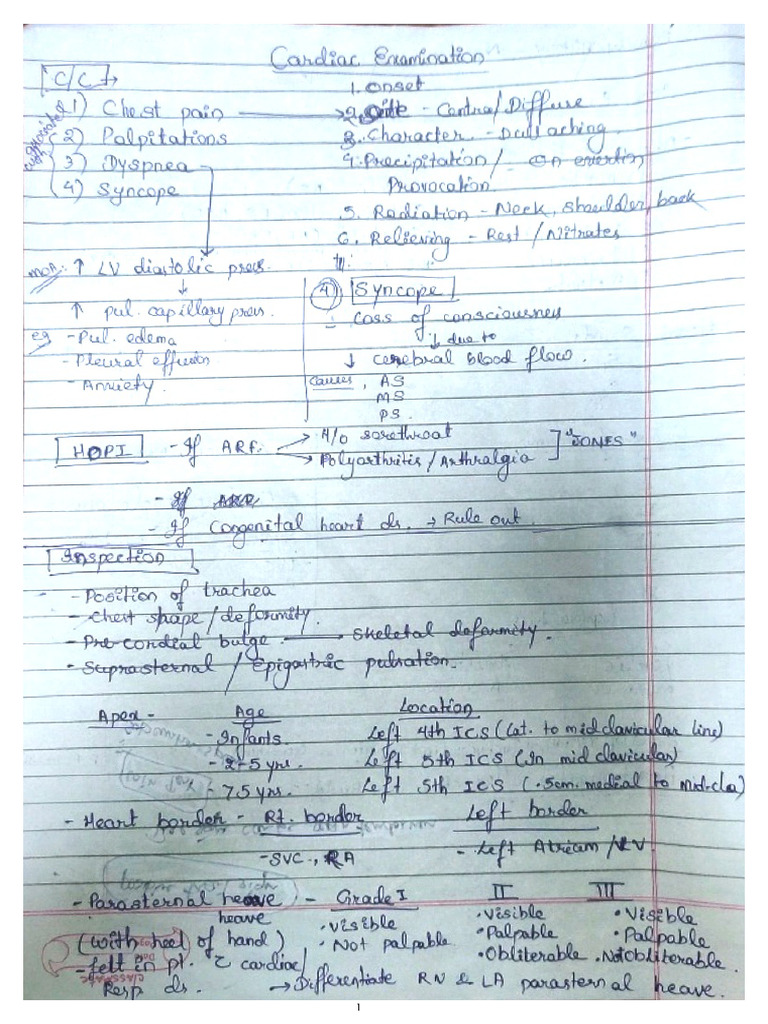 Cardiac Examination
C/C →
1. Onset
1) Chest pain → 2. Site - Central/Diffuse
2) Palpitations
3. Character - Dull aching
3) Dyspnea
4. Precipitation/ on exertion
4) Syncope
Provocation
5. Radiation - Neck, shoulder, back
6. Relieving - Rest / Nitrates
↑ LV diastolic pres.
↓
↑ pul. capillary pres.
eg - Pul. edema
- Pleural effusion
- Anxiety.
④ Syncope
Loss of consciousness
↓ due to
↓ cerebral blood flow.
Causes, AS
MS
PS.
HOPI - If ARF. → H/o sorethroat
→ Polyarthritis/Arthralgia ] "JONES"
- If
- If Congenital heart ds. → Rule out
Inspection
- Position of trachea
- Chest shape/deformity.
- Pre-cordial bulge. → skeletal deformity.
- Suprasternal / Epigastric pulsation.
Apex - Age Location
- Infants Left 4th ICS (Lat. to mid clavicular line)
- 2-5 yrs. Left 5th ICS (In mid clavicular)
- >5 yrs. Left 5th ICS (.5cm. medial to mid-cla)
- Heart border - Rt. border Left border
- SVC., RA - Left Atrium/LV
- Parasternal heave - Grade I II III
heave • Visible • Visible • Visible
(with heel of hand) • Not palpable • Palpable • Palpable
• Obliterable • Not Obliterable.
- felt in pt. c̄ cardiac/
Resp ds. → Differentiate RV & LA parasternal heave.
1